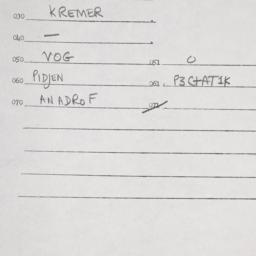 030 KREMER
040 —
050 VOG 051 O
060 PIDJEN 061 P3CHAT1K
070 ANADROF